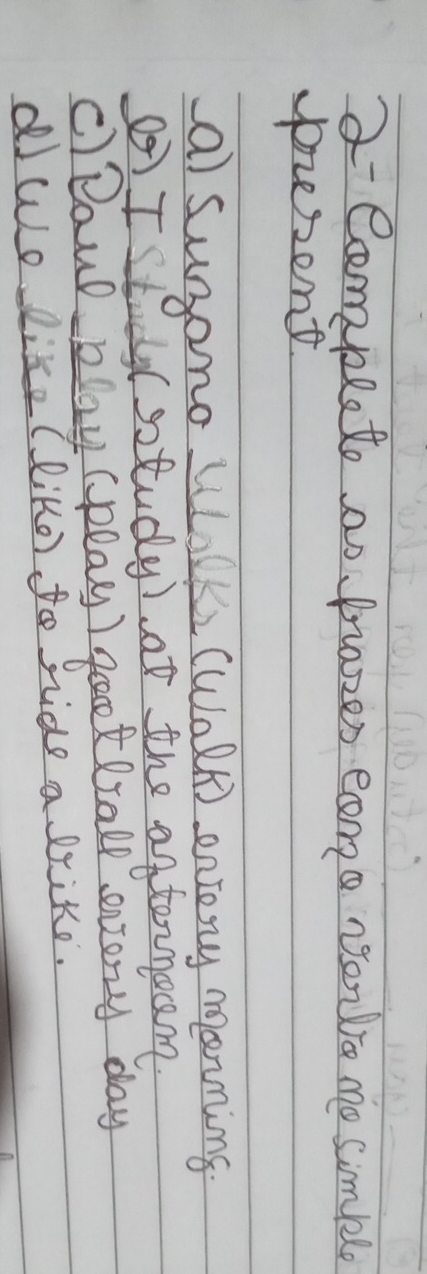 2- Complete as frases com o verbo no simple
present.
a) Suzana walks (walk) every morning.
b) I study (study) at the afternoom.
c) Paul play (play) football every day
d) We like (like) to ride a bike.